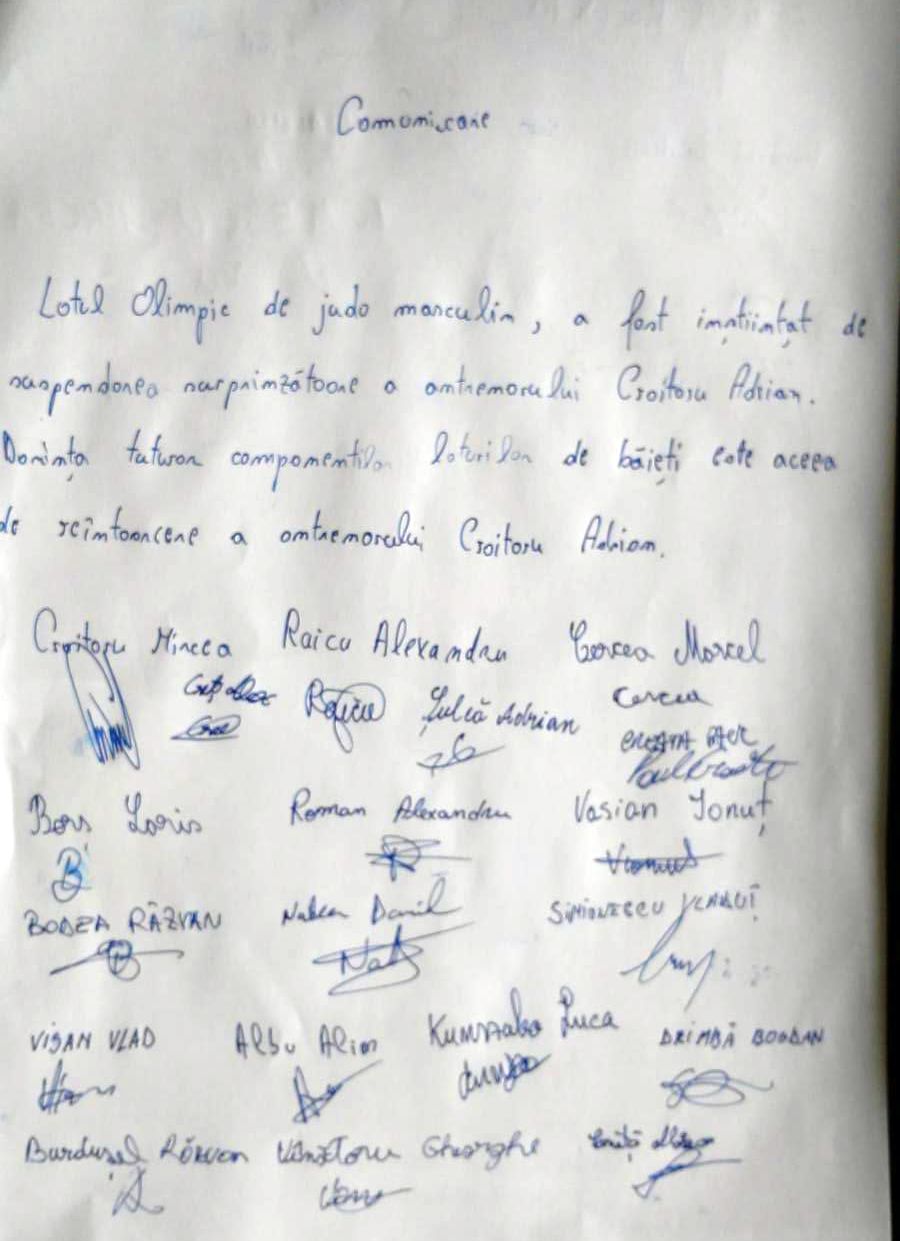 Comunicare
Lotul Olimpic de judo masculin, a fost înștiințat de
suspendarea surprinzătoare a antrenorului Croitoru Adrian.
Dorința tuturor componenților loturilor de băieți este aceea
de reîntoarcere a antrenorului Croitoru Adrian.
Croitoru Mircea Raicu Alexandru Cercea Marcel
Șulcă Adrian Cercea
Bors Loris Roman Alexandru Vasian Ionuț
BODEA RĂZVAN Natea Daniel SIMIONESCU
VIȘAN VLAD Albu Alin Kunszabo Luca DRIMBĂ BOGDAN
Burdușel Răzvan Vânătoru Gheorghe